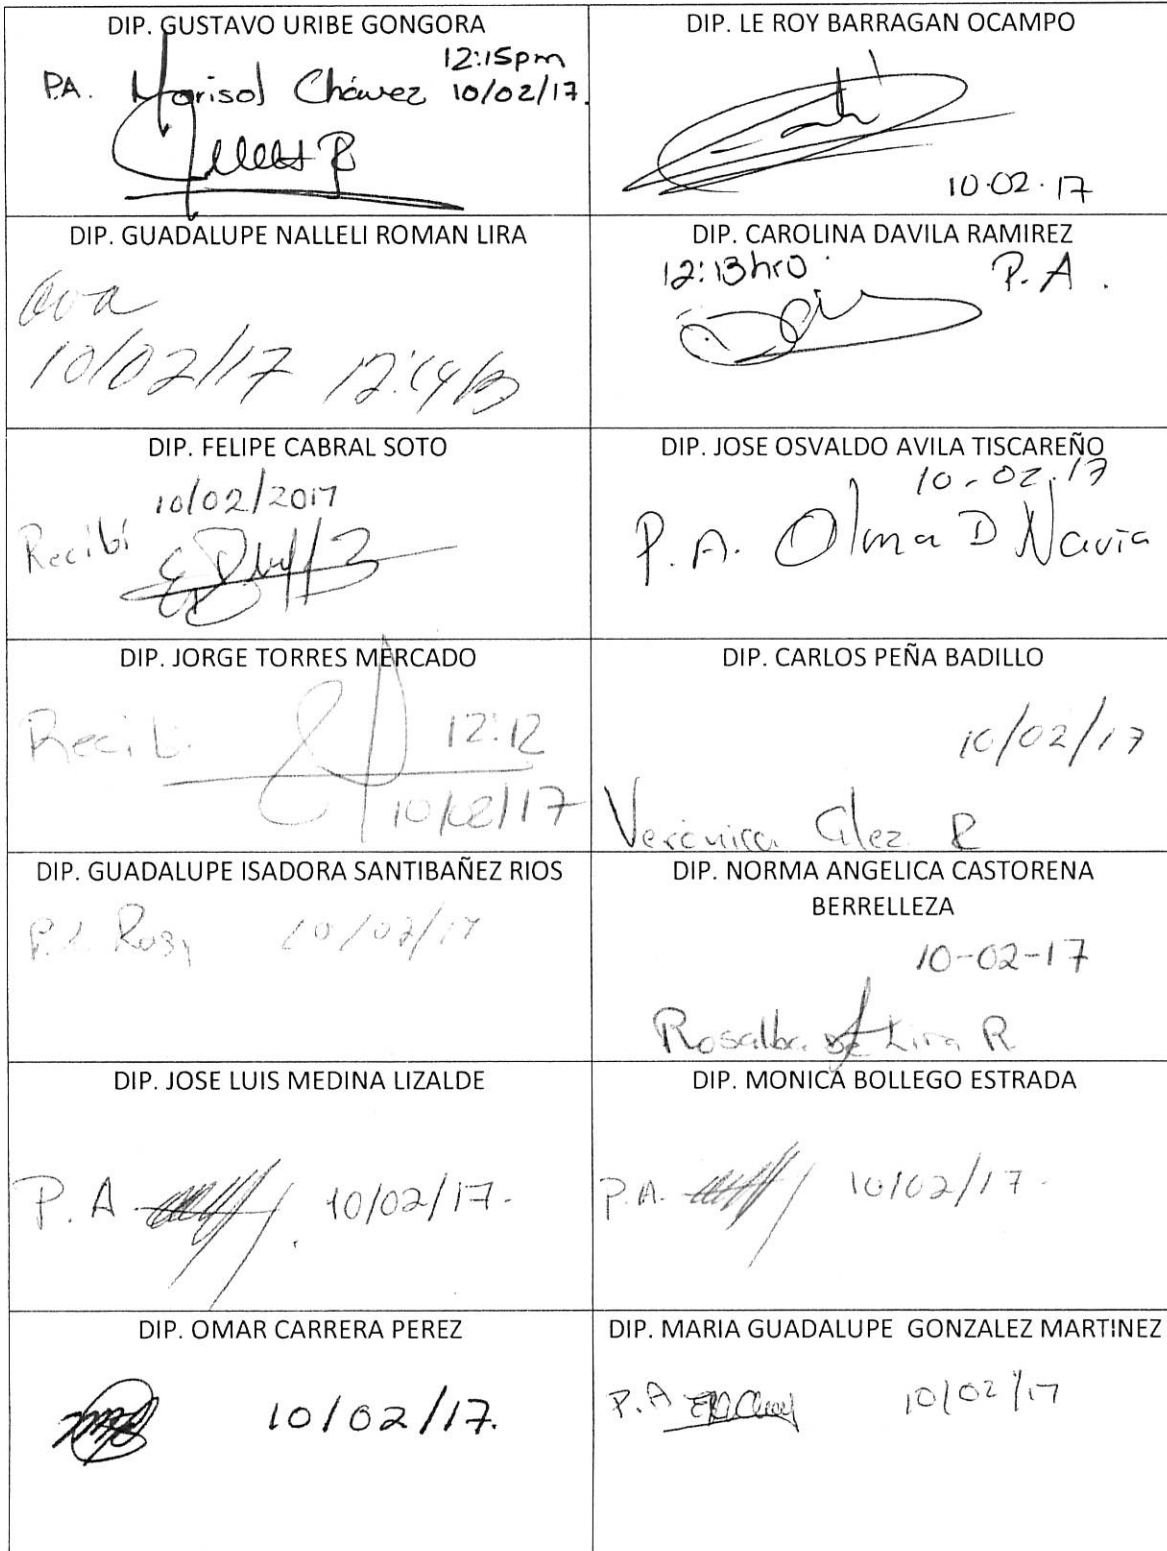 DIP. GUSTAVO URIBE GONGORA
12:15pm
P.A. Marisol Chávez 10/02/17.
DIP. LE ROY BARRAGAN OCAMPO
10·02·17
DIP. GUADALUPE NALLELI ROMAN LIRA
10/02/17
DIP. CAROLINA DAVILA RAMIREZ
12:13hrs P.A.
DIP. FELIPE CABRAL SOTO
10/02/2017
Recibí
DIP. JOSE OSVALDO AVILA TISCAREÑO
10-02-17
P.A. Olma D Navia
DIP. JORGE TORRES MERCADO
Recibí 12:12
10/02/17
DIP. CARLOS PEÑA BADILLO
10/02/17
Verónica Glez R
DIP. GUADALUPE ISADORA SANTIBAÑEZ RIOS
Rosy 10/02/17
DIP. NORMA ANGELICA CASTORENA
BERRELLEZA
10-02-17
Rosalba de Lira R
DIP. JOSE LUIS MEDINA LIZALDE
P.A 10/02/17-
DIP. MONICA BOLLEGO ESTRADA
P.A. 10/02/17-
DIP. OMAR CARRERA PEREZ
10/02/17.
DIP. MARIA GUADALUPE GONZALEZ MARTINEZ
P.A 10/02/17